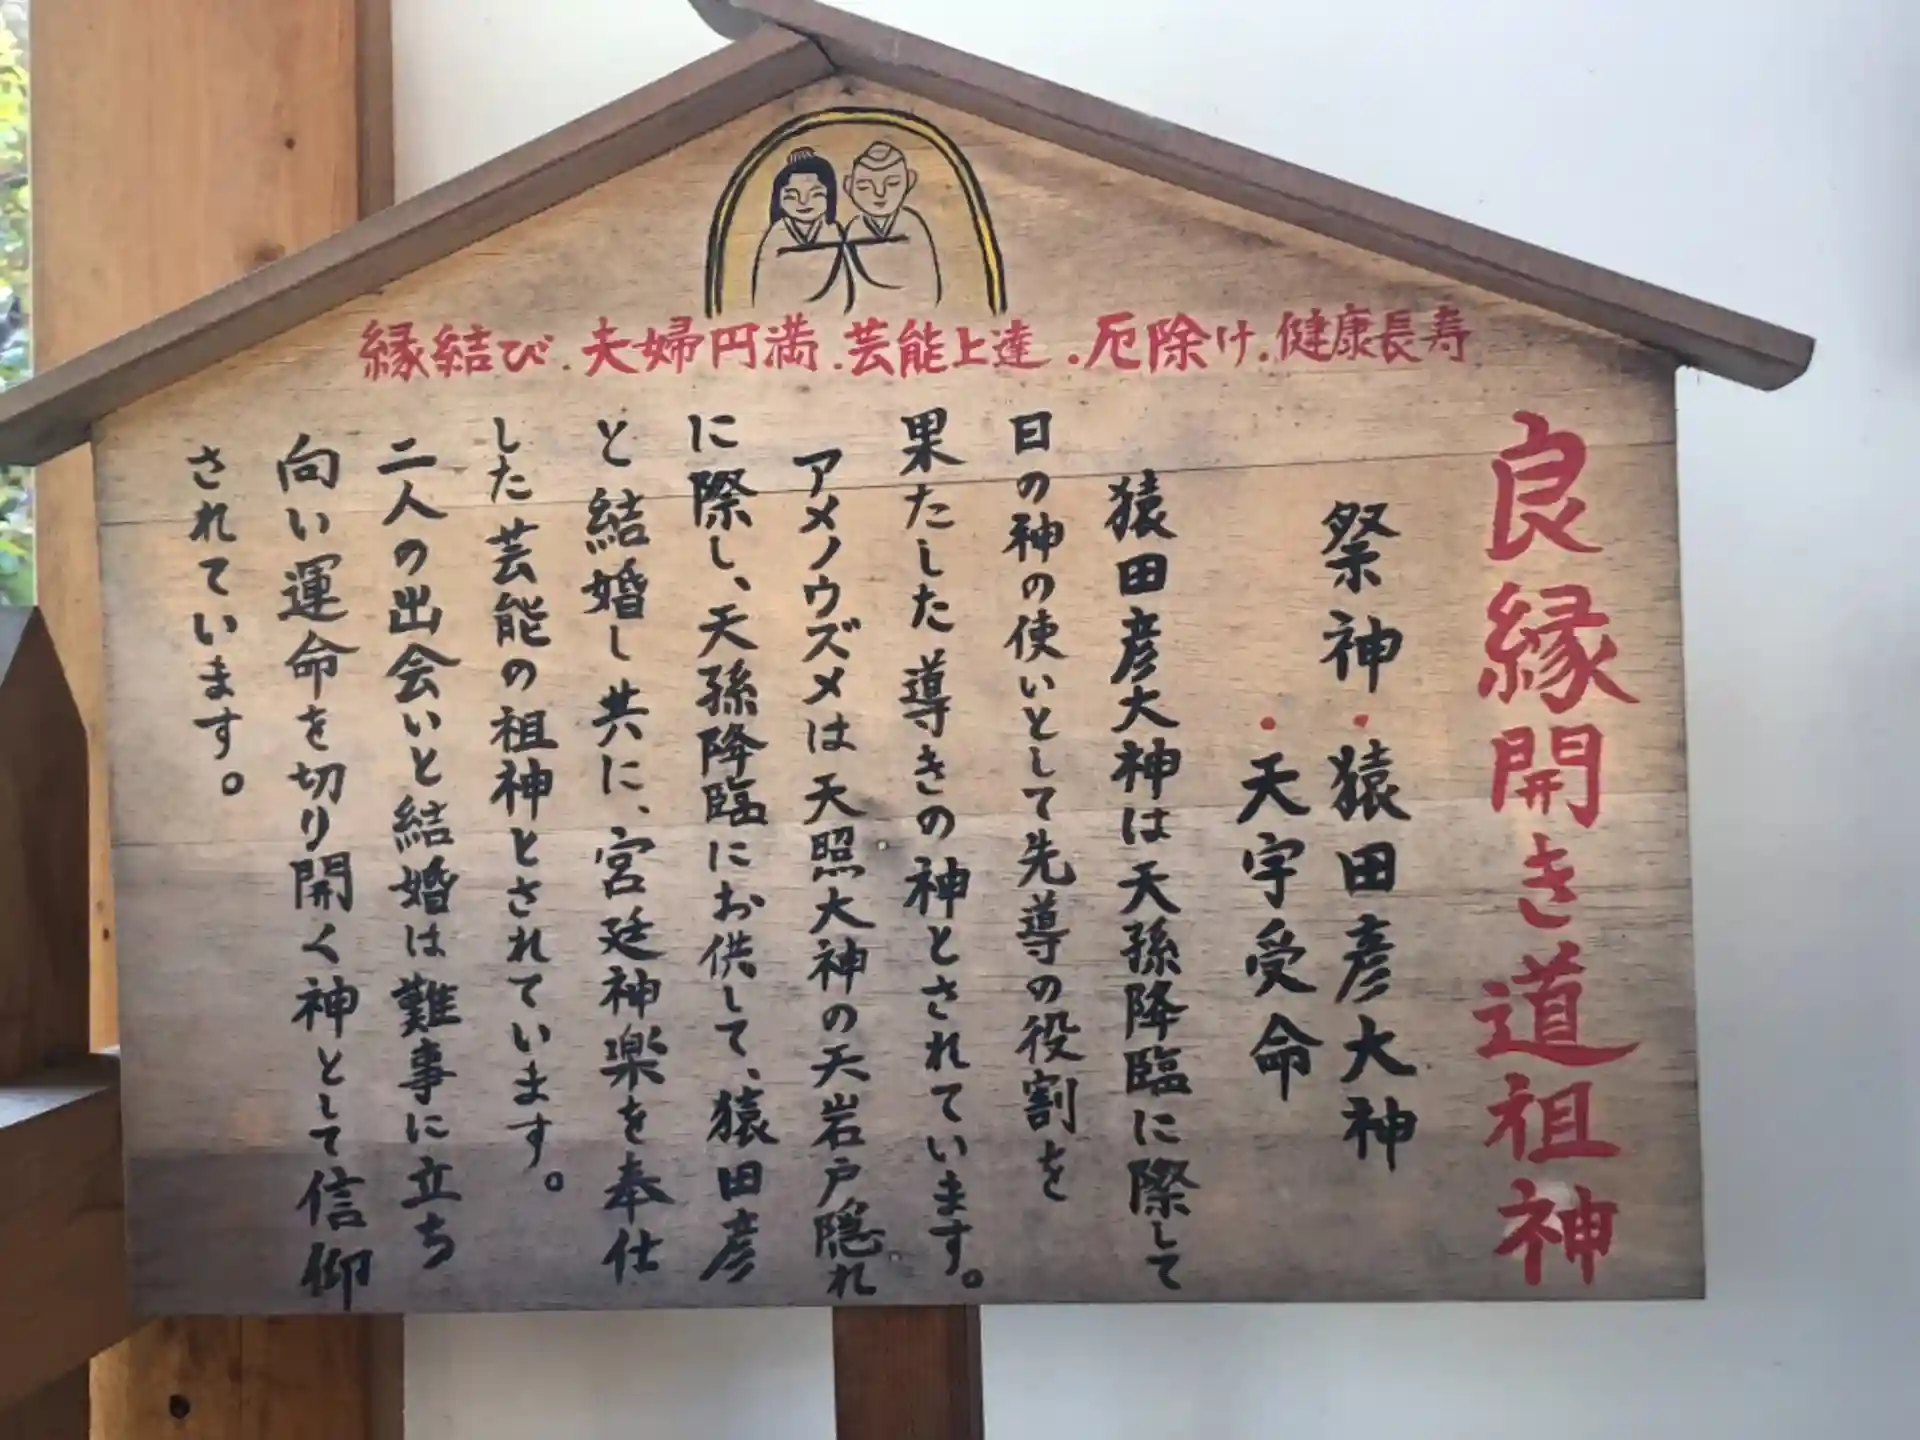 縁結び．夫婦円満．芸能上達．厄除け．健康長寿
良縁開き道祖神
祭神・猿田彦大神
・天宇受命
猿田彦大神は天孫降臨に際して
日の神の使いとして先導の役割を
果たした導きの神とされています。
アメノウズメは天照大神の天岩戸隠れ
に際し、天孫降臨にお供して、猿田彦
と結婚し共に、宮廷神楽を奉仕
した芸能の祖神とされています。
二人の出会いと結婚は難事に立ち
向い運命を切り開く神として信仰
されています。